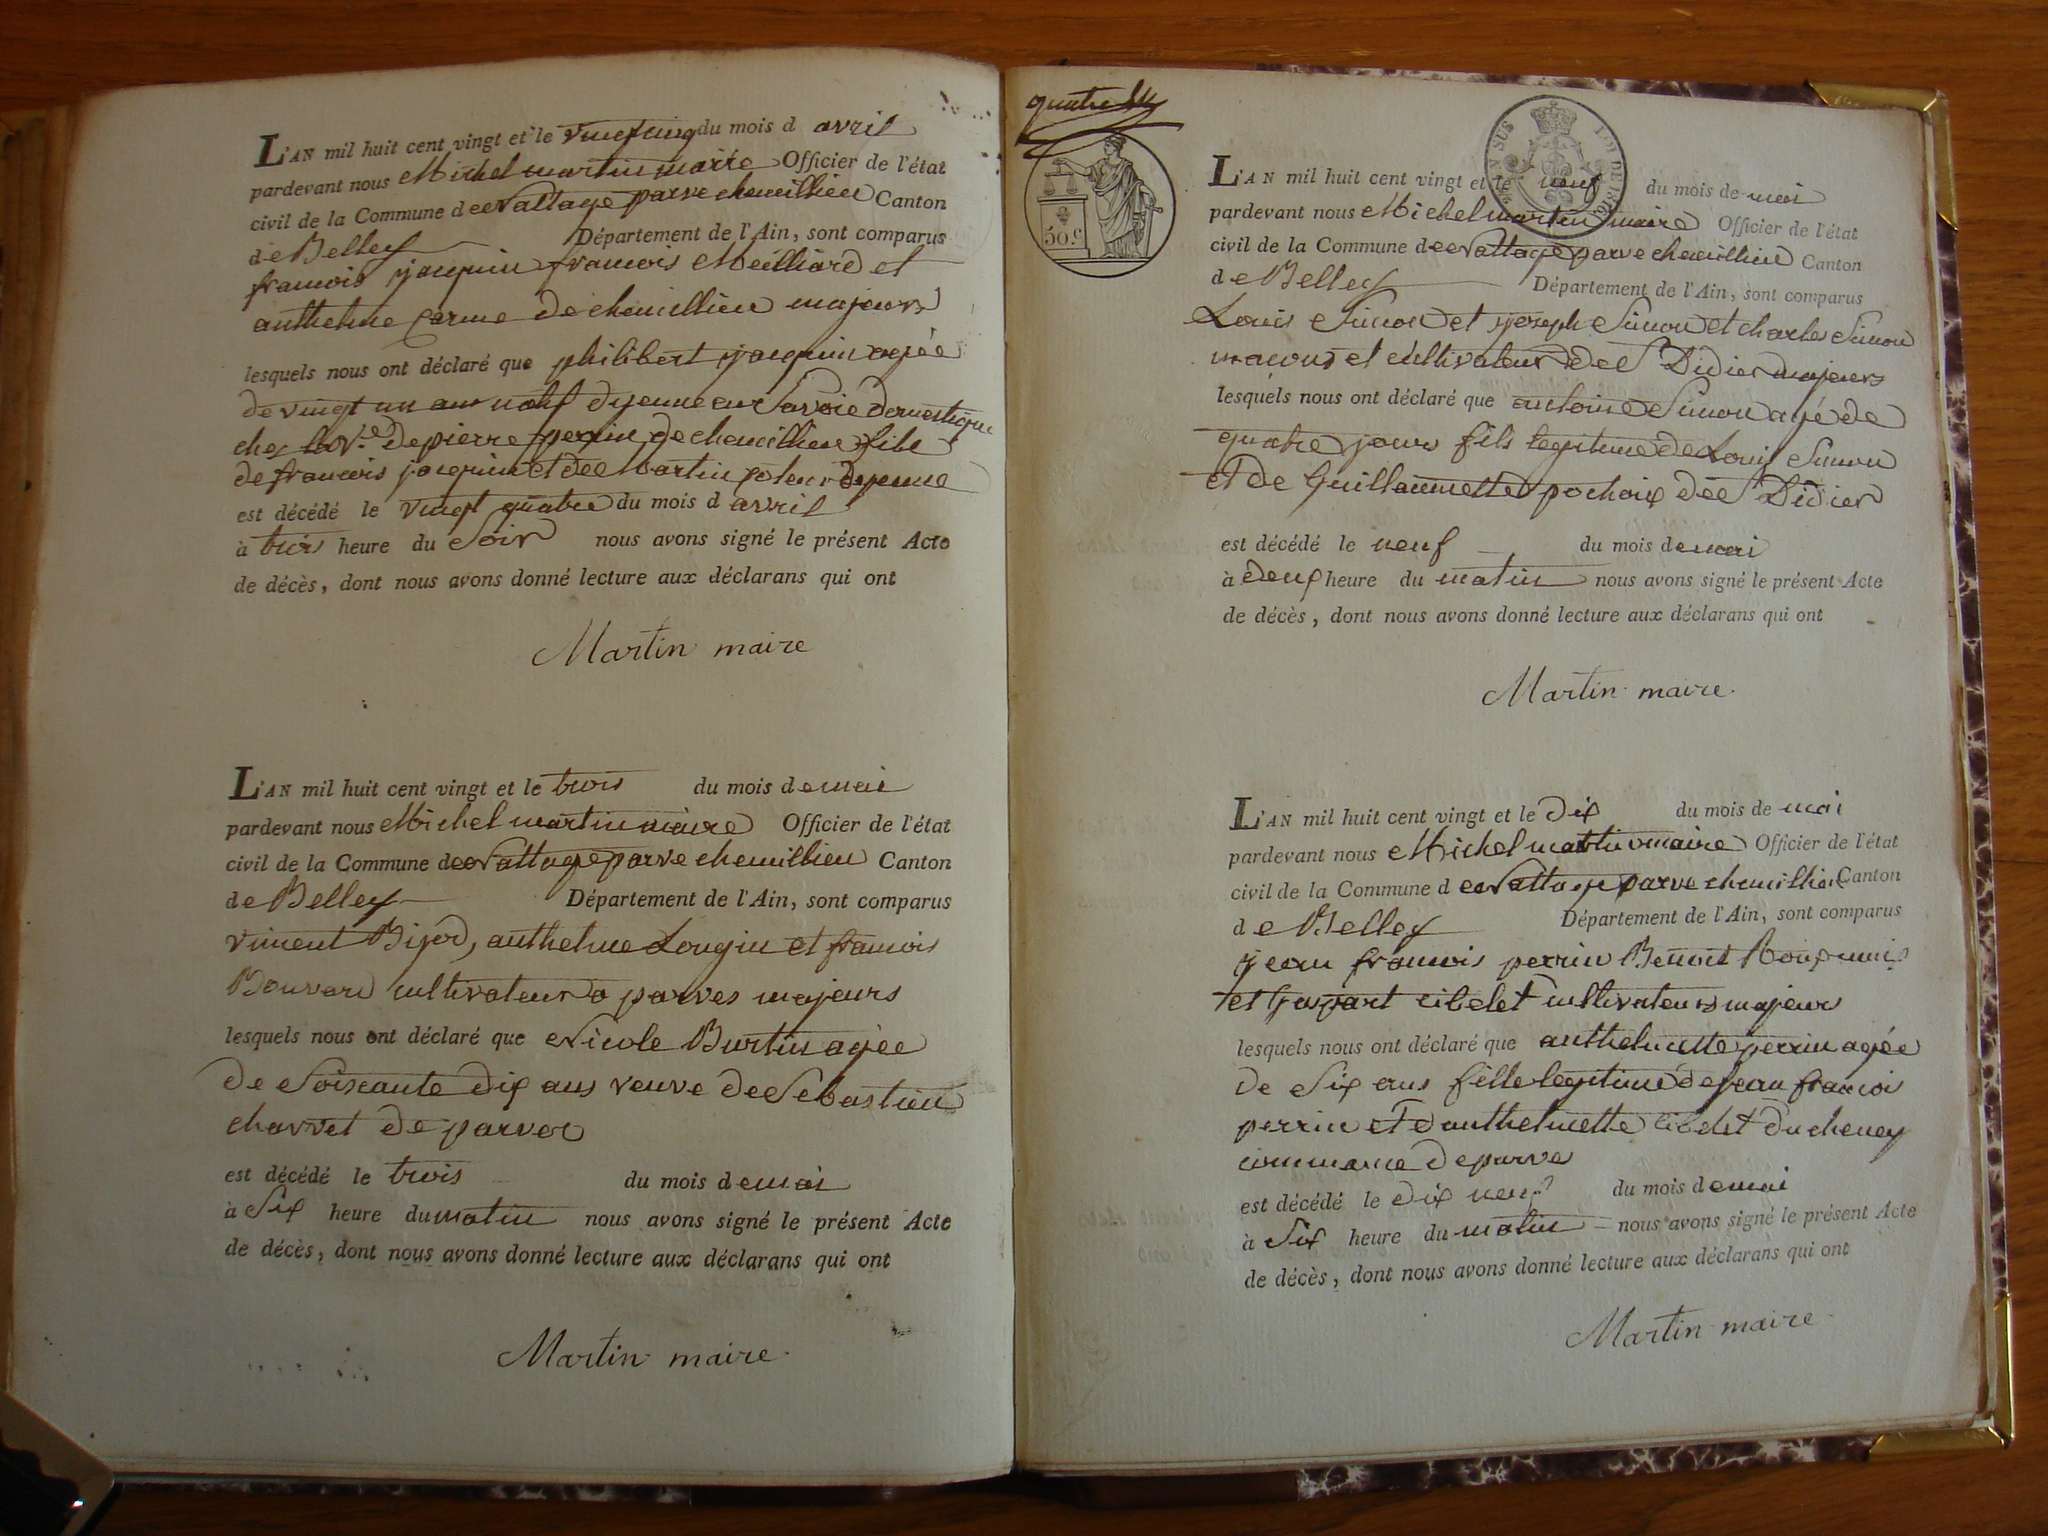 L'AN mil huit cent vingt et le vingt cinq du mois d avril
pardevant nous Michel martin maire Officier de l'état
civil de la Commune de Nattage parve chemillieu Canton
de Belley Département de l'Ain, sont comparus
francois jacquin francois Meilliard et
anthelme carme de chemillieu majeurs
lesquels nous ont déclaré que philibert jacquin agée
de vingt un ans natif dyenne en Savoie domestique
chez la Ve. de pierre perrin de chemillieu fils
de francois jacquin et de martin dyenne
est décédé le vingt quatre du mois d avril
à trois heure du Soir nous avons signé le présent Acte
de décès, dont nous avons donné lecture aux déclarans qui ont
Martin maire
L'AN mil huit cent vingt et le trois du mois de mai
pardevant nous Michel martin maire Officier de l'état
civil de la Commune de Nattage parve chemillieu Canton
de Belley Département de l'Ain, sont comparus
vincent Bijod, anthelme Longin et francois
Bouvard cultivateur a parves majeurs
lesquels nous ont déclaré que Nicole Burtin agée
de Soixante dix ans veuve de Sebastien
charvet de parves
est décédé le trois du mois de mai
à Six heure du matin nous avons signé le présent Acte
de décès, dont nous avons donné lecture aux déclarans qui ont
Martin maire
quatre
50 c.
L'AN mil huit cent vingt et le neuf du mois de mai
pardevant nous Michel martin maire Officier de l'état
civil de la Commune de Nattage parve chemillieu Canton
de Belley Département de l'Ain, sont comparus
Louis Simon et joseph Simon et charles Simon
macons et cultivateur de St Didier majeurs
lesquels nous ont déclaré que antoine Simon agé de
quatre jours fils legitime de Louis Simon
et de Guillaumette pochoix de St Didier
est décédé le neuf du mois de mai
à deux heure du matin nous avons signé le présent Acte
de décès, dont nous avons donné lecture aux déclarans qui ont
Martin maire
L'AN mil huit cent vingt et le dix du mois de mai
pardevant nous Michel martin maire Officier de l'état
civil de la Commune de Nattage parve chemillieu Canton
de Belley Département de l'Ain, sont comparus
jean francois perrin Benoit
et Gaspart cibelet cultivateurs majeurs
lesquels nous ont déclaré que anthelmette perrin agée
de Six ans fille legitime de jean francois
perrin et d anthelmette cibelet du cheney
commune de parves
est décédé le dix neuf du mois de mai
à Six heure du matin nous avons signé le présent Acte
de décès, dont nous avons donné lecture aux déclarans qui ont
Martin maire